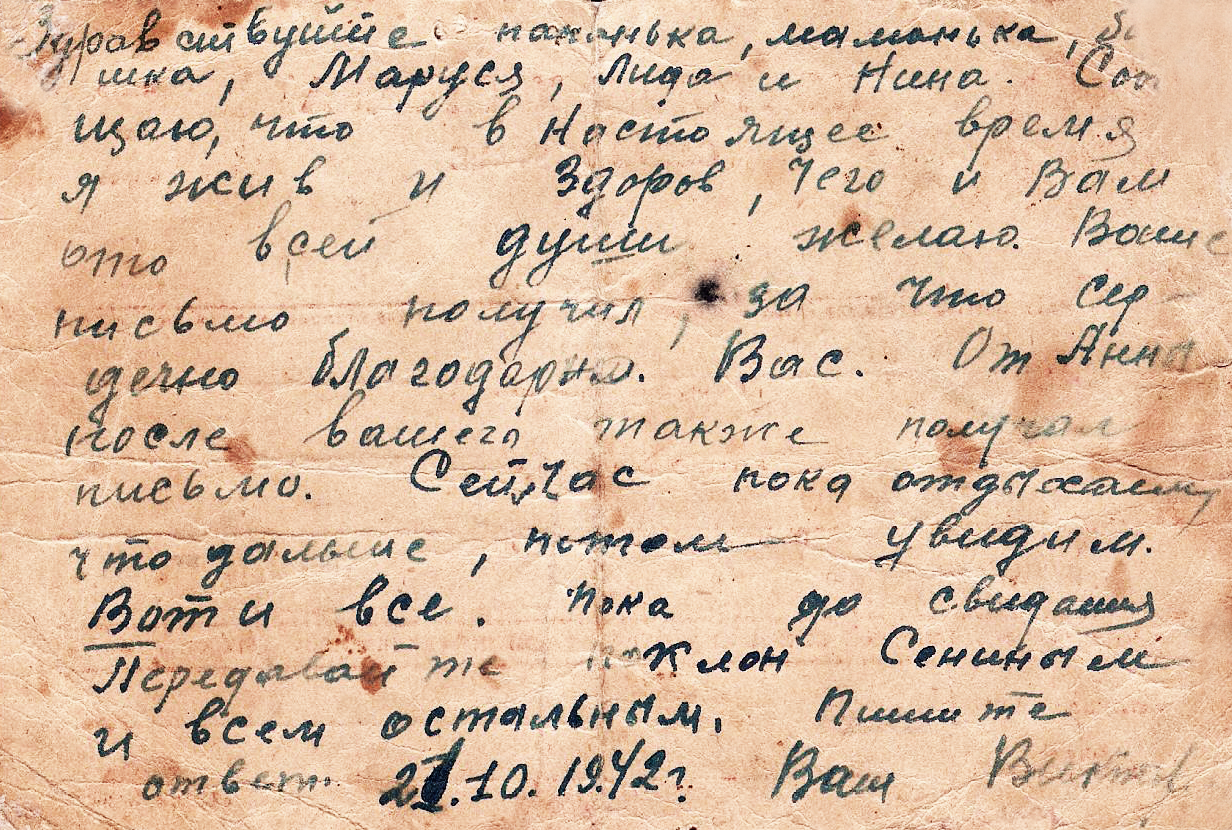 Здравствуйте папонька, мамонька,
шка, Маруся, Лида и Нина. Сооб
щаю, что в настоящее время
я жив и здоров, чего и Вам
ото всей души желаю. Ваше
письмо получил, за что сер-
дечно благодарю Вас. От Анны
после вашего также получил
письмо. Сейчас пока отдыхаем,
что дальше, потом увидим.
Вот и все. Пока до свидания
Передавайте поклон Сениным
и всем остальным. Пишите
ответ. .10.1942г. Ваш Виктор